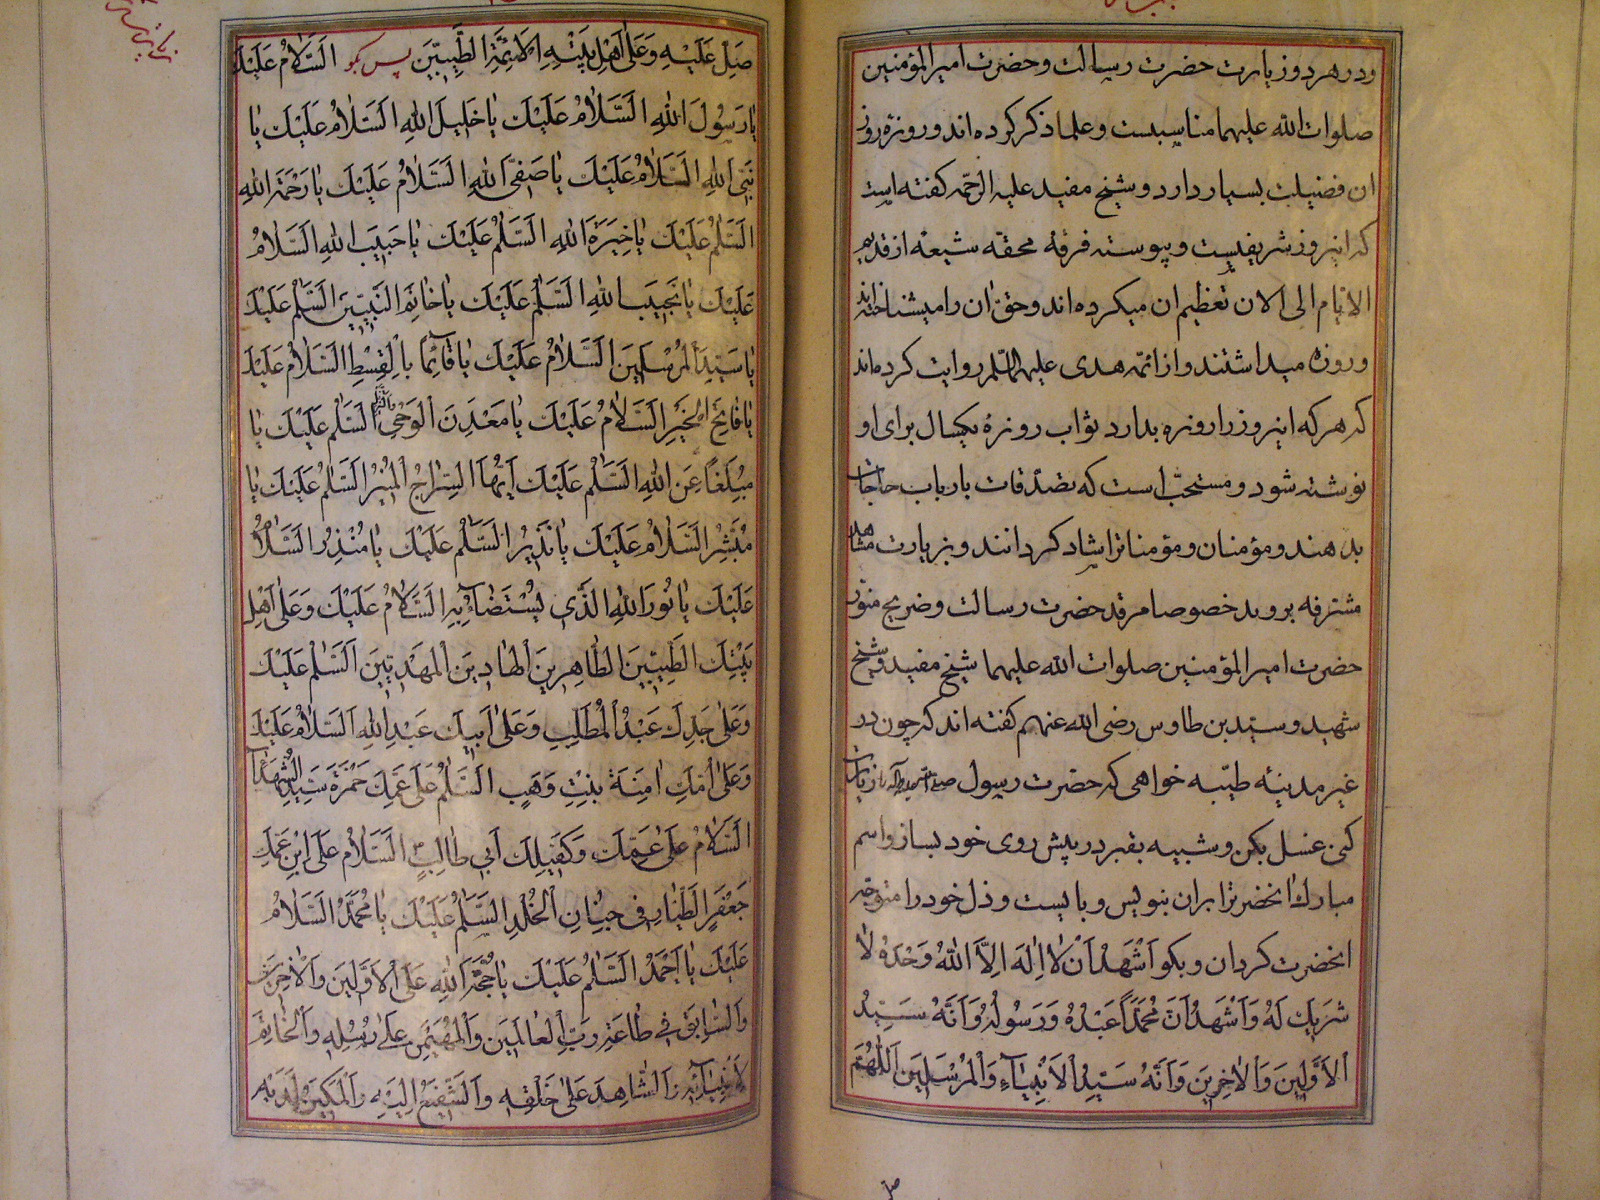 ودر هر دو زیارت حضرت رسالت و حضرت امیر المؤمنین
صلوات الله علیهما مناسبست و علما ذکر کرده اند و روزهٔ روز
ان فضیلت بسیار دارد و شیخ مفید علیه الرحمه کفته است
که این روز شریفیست و پیوسته فرقهٔ محقه شیعه از قدیم
الایام الی الان تعظیم ان میکرده اند و حق ان را میشناخته اند
و روزه میداشتند و از ائمه هدی علیهم السلم روایت کرده اند
که هر که این روز را روزه بدارد ثواب روزهٔ یکسال برای او
نوشته شود و مستحب است که تصدقات بارباب حاجات
بدهند و مؤمنان و مؤمنات را شاد کردانند و بزیارت مشاهد
مشرفه بروند خصوصا مرقد حضرت رسالت و ضریح منور
حضرت امیر المؤمنین صلوات الله علیهما شیخ مفید و شیخ
شهید و سید بن طاوس رضی الله عنهم کفته اند که چون در
غیر مدینهٔ طیبه خواهی که حضرت رسول صلی الله علیه وآله را زیارت
کنی غسل بکن و شبیه بقبر در پیش روی خود بساز و اسم
مبارک انحضرترا بران بنویس و بایست و دل خود را متوجه
انحضرت کردان و بکو اَشْهَدُ اَنْ لا اِلهَ اِلَّا اللهُ وَحْدَهُ لا
شَریکَ لَهُ وَاَشْهَدُ اَنَّ مُحَمَّداً عَبْدُهُ وَرَسُولُهُ وَاَنَّهُ سَیِّدُ
الاَوَّلینَ وَالاخِرینَ وَاَنَّهُ سَیِّدُ الاَنْبِیآءِ وَالْمُرْسَلینَ اَللّهُمَّ
صَلِّ عَلَیْهِ وَعَلی اَهْلِ بَیْتِهِ الاَئِمَّةِ الطَّیِّبینَ پس بکو اَلسَّلامُ عَلَیْكَ
یا رَسُولَ اللهِ اَلسَّلامُ عَلَیْكَ یا خَلیلَ اللهِ اَلسَّلامُ عَلَیْكَ یا
نَبِیَّ اللهِ اَلسَّلامُ عَلَیْكَ یا صَفِیَّ اللهِ اَلسَّلامُ عَلَیْكَ یا رَحْمَةَ اللهِ
اَلسَّلمُ عَلَیْكَ یا خِیَرَةَ اللهِ اَلسَّلمُ عَلَیْكَ یا حَبیبَ اللهِ اَلسَّلامُ
عَلَیْكَ یا نَجیبَ اللهِ اَلسَّلمُ عَلَیْكَ یا خاتِمَ النَّبِیّینَ اَلسَّلمُ عَلَیْكَ
یا سَیِّدَ الْمُرْسَلینَ اَلسَّلامُ عَلَیْكَ یا قآئِماً بِالْقِسْطِ اَلسَّلامُ عَلَیْكَ
یا فاتِحَ الْخَیْرِ اَلسَّلامُ عَلَیْكَ یا مَعْدِنَ الْوَحْیِ وَالتَّنْزیلِ اَلسَّلمُ عَلَیْكَ یا
مُبَلِّغاً عَنِ اللهِ اَلسَّلمُ عَلَیْكَ اَیُّهَا السِّراجُ الْمُنیرُ اَلسَّلمُ عَلَیْكَ یا
مُبَشِّرُ اَلسَّلامُ عَلَیْكَ یا نَذیرُ اَلسَّلمُ عَلَیْكَ یا مُنْذِرُ اَلسَّلامُ
عَلَیْكَ یا نُورَ اللهِ الَّذی یُسْتَضآءُ بِهِ اَلسَّلامُ عَلَیْكَ وَعَلی اَهْلِ
بَیْتِكَ الطَّیِّبینَ الطّاهِرینَ الْهادینَ الْمَهْدِیّینَ اَلسَّلمُ عَلَیْكَ
وَعَلی جَدِّكَ عَبْدِ الْمُطَّلِبِ وَعَلی اَبیكَ عَبْدِ اللهِ اَلسَّلامُ عَلَیْكَ
وَعَلی اُمِّكَ امِنَةَ بِنْتِ وَهَبٍ اَلسَّلمُ عَلی عَمِّكَ حَمْزَةَ سَیِّدِ الشُّهَدآءِ
اَلسَّلامُ عَلی عَمِّكَ وَكَفیلِكَ اَبی طالِبٍ اَلسَّلامُ عَلَی ابْنِ عَمِّكَ
جَعْفَرٍ الطَّیّارِ فی جِنانِ الْخُلْدِ اَلسَّلمُ عَلَیْكَ یا مُحَمَّدُ اَلسَّلامُ
عَلَیْكَ یا اَحْمَدُ اَلسَّلمُ عَلَیْكَ یا حُجَّةَ اللهِ عَلَی الاَوَّلینَ وَالاخِرینَ
وَالسّابِقَ فی طاعَةِ رَبِّ الْعالَمینَ وَالْمُهَیْمِنَ عَلی رُسُلِهِ وَالْخاتِمَ
لاَنْبِیآئِهِ وَالشّاهِدَ عَلی خَلْقِهِ وَالشَّفیعَ اِلَیْهِ وَالْمَكینَ لَدَیْهِ